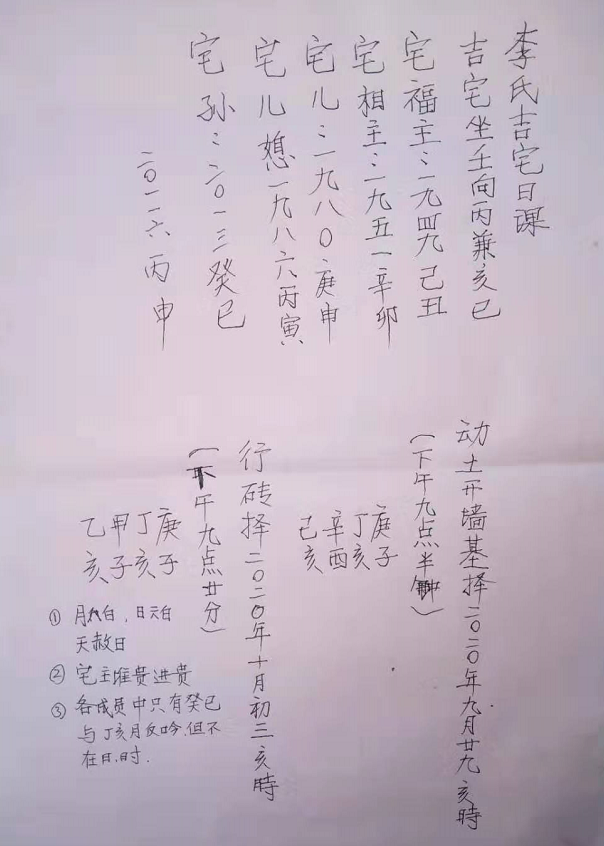 李氏吉宅日课
吉宅坐壬向丙兼亥巳
宅福主:一九四九己丑
宅相主:一九五一辛卯
宅儿:一九八〇、庚申
宅儿媳一九八六丙寅
宅孙:二〇一三癸巳
二〇一六丙申
动土开墙基择二〇二〇年九月廿九亥時
(下午九点半钟)
庚子
丁亥
辛酉
己亥
行砖择二〇二〇年十月初三亥時
(下午九点廿分)
庚子
丁亥
甲子
乙亥
① 月九白,日六白
天赦日
② 宅主堆贵进贵
③ 各成员中只有癸巳
与丁亥月反吟,但不
在日,时.